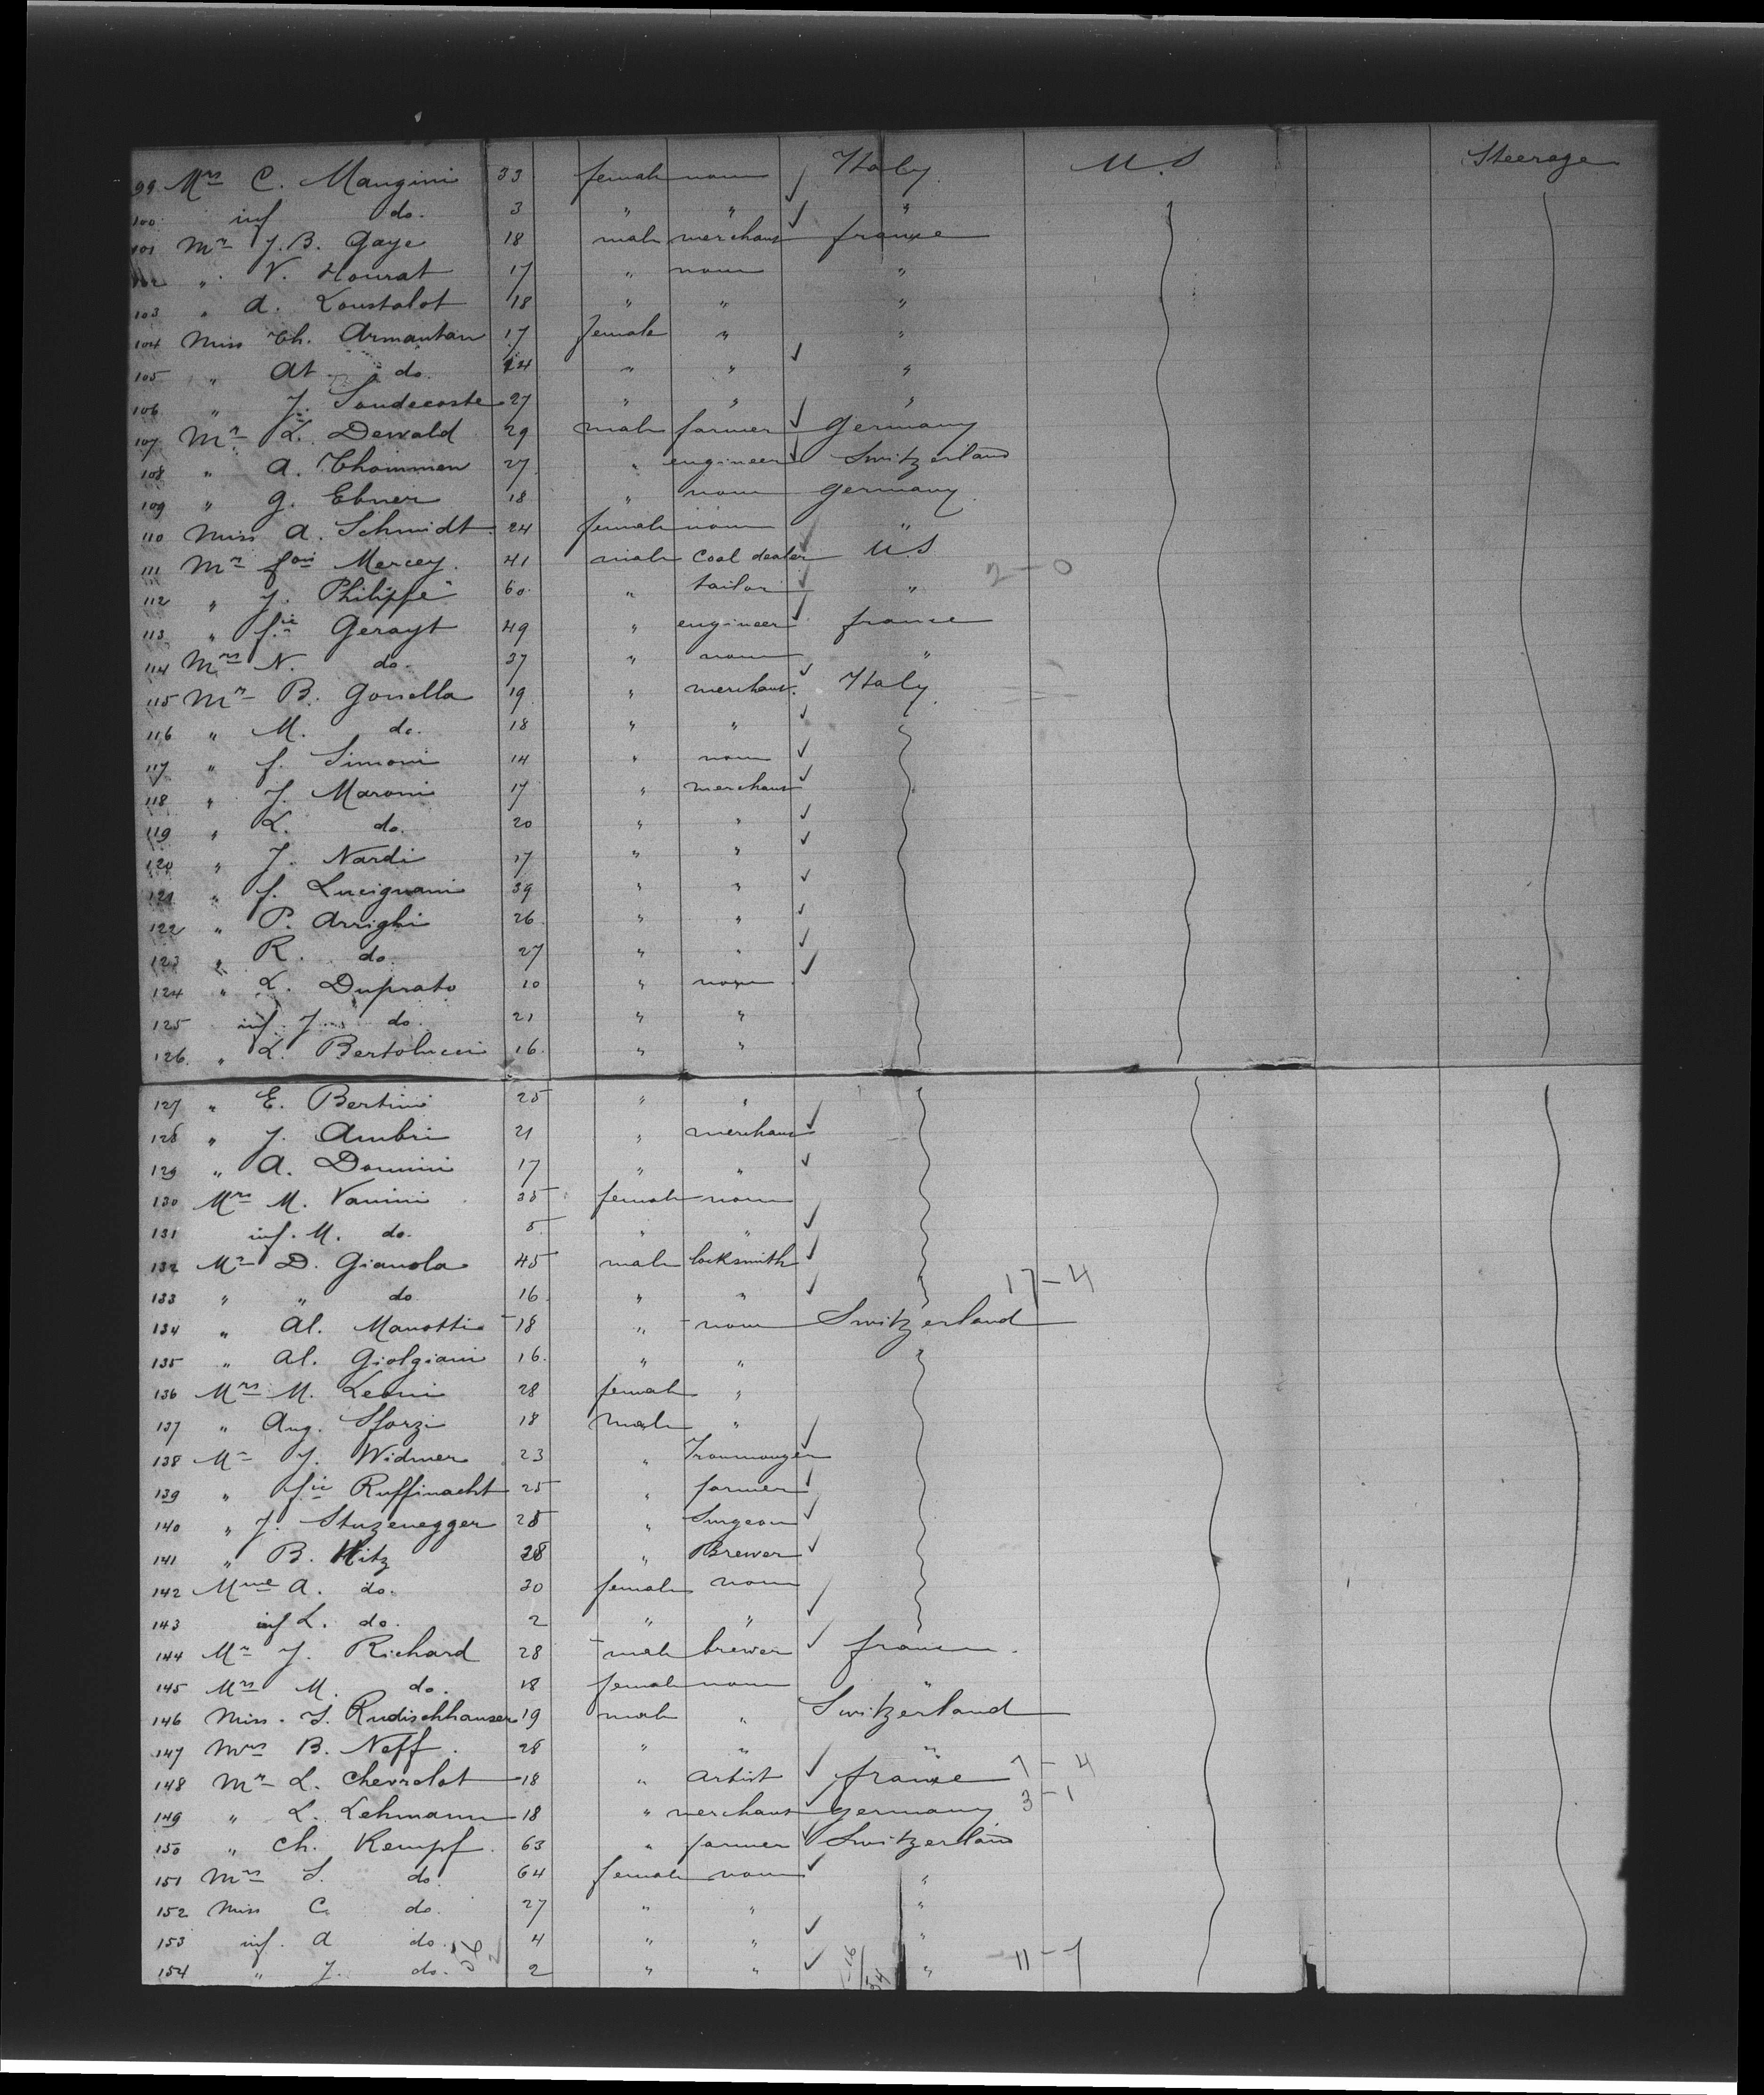 99 Mrs C. Mangini 33 female none Italy U.S Steerage
100 inf do. 3 " " "
101 Mr J.B. Gaye 18 male merchant france
102 " V. Hourat 17 " none "
103 " A. Loustalot 18 " " "
104 Miss Th. Armantau 17 female " "
105 " At do. 24 " " "
106 " J. Soudecoste 27 " " "
107 Mr L. Dewald 29 male farmer Germany
108 " A. Thommen 27 " engineer Switzerland
109 " G. Ebner 18 " none Germany
110 Miss A. Schmidt 24 female none "
111 Mr fois Mercey. 41 male Coal dealer U.S
112 " J. Philippe 60 " tailor " 2-0
113 " fie Gerayt 49 " engineer france
114 Mrs N. do. 37 " none "
115 Mr B. Gonella 19 " merchant. Italy
116 " M. do. 18 " "
117 " f. Simoni 14 " none
118 " J. Maroni 17 " merchant
119 " L. do. 20 " "
120 " J. Nardi 17 " "
121 " f. Lucignani 39 " "
122 " P. Arrighi 26 " "
123 " R. do. 27 " "
124 " L. Duprato 10 " none
125 inf. J. do. 21 " "
126 " L. Bertolucci 16 " "
127 " E. Bertini 25 " "
128 " J. Ambri 21 " merchant
129 " A. Donnini 17 " "
130 Mrs M. Vanini 35 female none
131 inf. M. do. 5 " "
132 Mr D. Gianola 45 male locksmith
133 " " do 16 " " 17-4
134 " Al. Manotti 18 " none Switzerland
135 " Al. Giolgiani 16. " "
136 Mrs M. Leoni 28 female "
137 " Aug. Sforzi 18 male "
138 Mr J. Widmer 23 " Ironmonger
139 " fie Ruffinacht 25 " farmer
140 " J. Stuzenegger 28 " Surgeon
141 " B. Hitz 28 " Brewer
142 Mme A. do. 30 female none
143 inf L. do. 2 " "
144 Mr J. Richard 28 male brewer france.
145 Mrs M. do. 18 female none "
146 Miss. S. Rudischhauser 19 male " Switzerland
147 Mrs B. Neff. 28 " " "
148 Mr L. Chevrolot 18 " artist france 7-4
149 " L. Lehmann 18 " merchant germany 3-1
150 " Ch. Kempf. 63 " farmer Switzerland
151 Mrs S. do. 64 female none "
152 Miss C. do. 27 " " "
153 inf. A do. 4 " " "
154 " J. do. 2 " " " 11-7